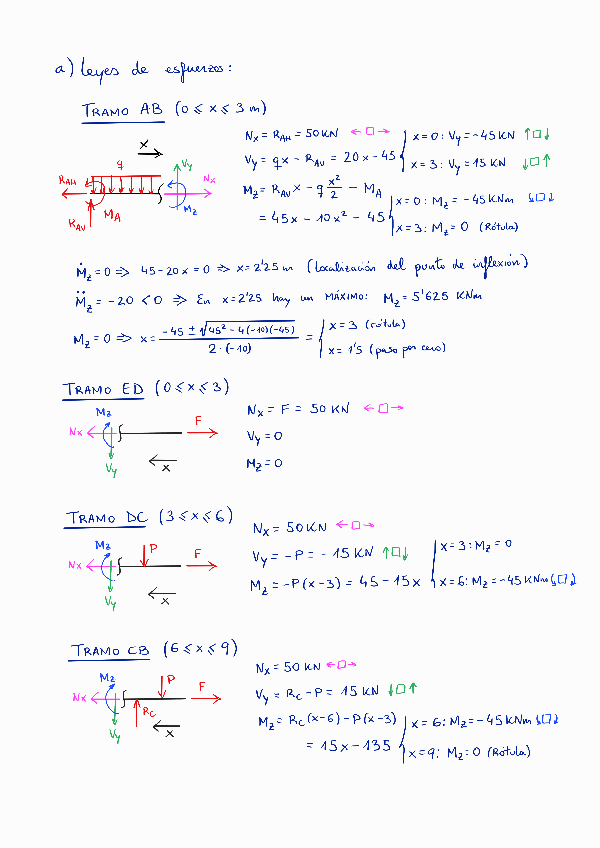 a) Leyes de esfuerzos:
TRAMO AB (0 ≤ x ≤ 3 m)
x
q
R_AH
R_AV
M_A
V_y
N_x
M_z
N_x = R_AH = 50 KN ← □ →
V_y = qx - R_AV = 20x - 45 { x = 0: V_y = -45 KN ↑□↓
x = 3: V_y = 15 KN ↓□↑
M_z = R_AV x - q x²/2 - M_A
= 45x - 10x² - 45 { x = 0: M_z = -45 KNm
x = 3: M_z = 0 (Rótula)
Ṁ_z = 0 => 45 - 20x = 0 => x = 2'25 m (localización del punto de inflexión)
M̈_z = -20 < 0 => En x = 2'25 hay un MÁXIMO: M_z = 5'625 KNm
M_z = 0 => x = (-45 ± √(45² - 4(-10)(-45))) / (2·(-10)) = { x = 3 (rótula)
x = 1'5 (paso por cero)
TRAMO ED (0 ≤ x ≤ 3)
M_z
N_x
V_y
F
x
N_x = F = 50 KN ← □ →
V_y = 0
M_z = 0
TRAMO DC (3 ≤ x ≤ 6)
M_z
P
N_x
F
V_y
x
N_x = 50 KN ← □ →
V_y = -P = -15 KN ↑□↓
M_z = -P(x-3) = 45 - 15x { x = 3: M_z = 0
x = 6: M_z = -45 KNm
TRAMO CB (6 ≤ x ≤ 9)
M_z
P
N_x
F
R_C
V_y
x
N_x = 50 KN ← □ →
V_y = R_C - P = 15 KN ↓□↑
M_z = R_C(x-6) - P(x-3)
= 15x - 135 { x = 6: M_z = -45 KNm
x = 9: M_z = 0 (Rótula)